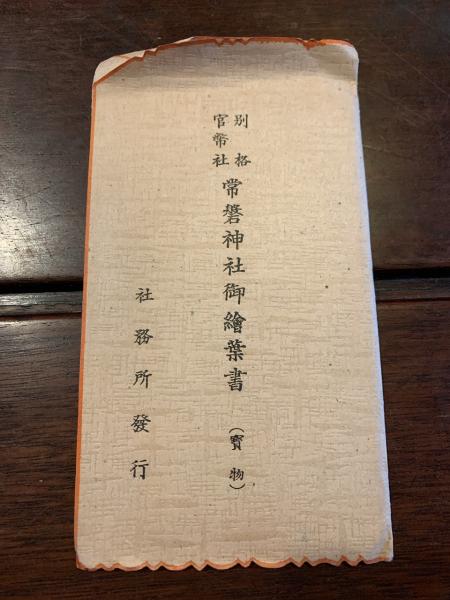 別格官幣社常磐神社御繪葉書（寶物）
社務所發行